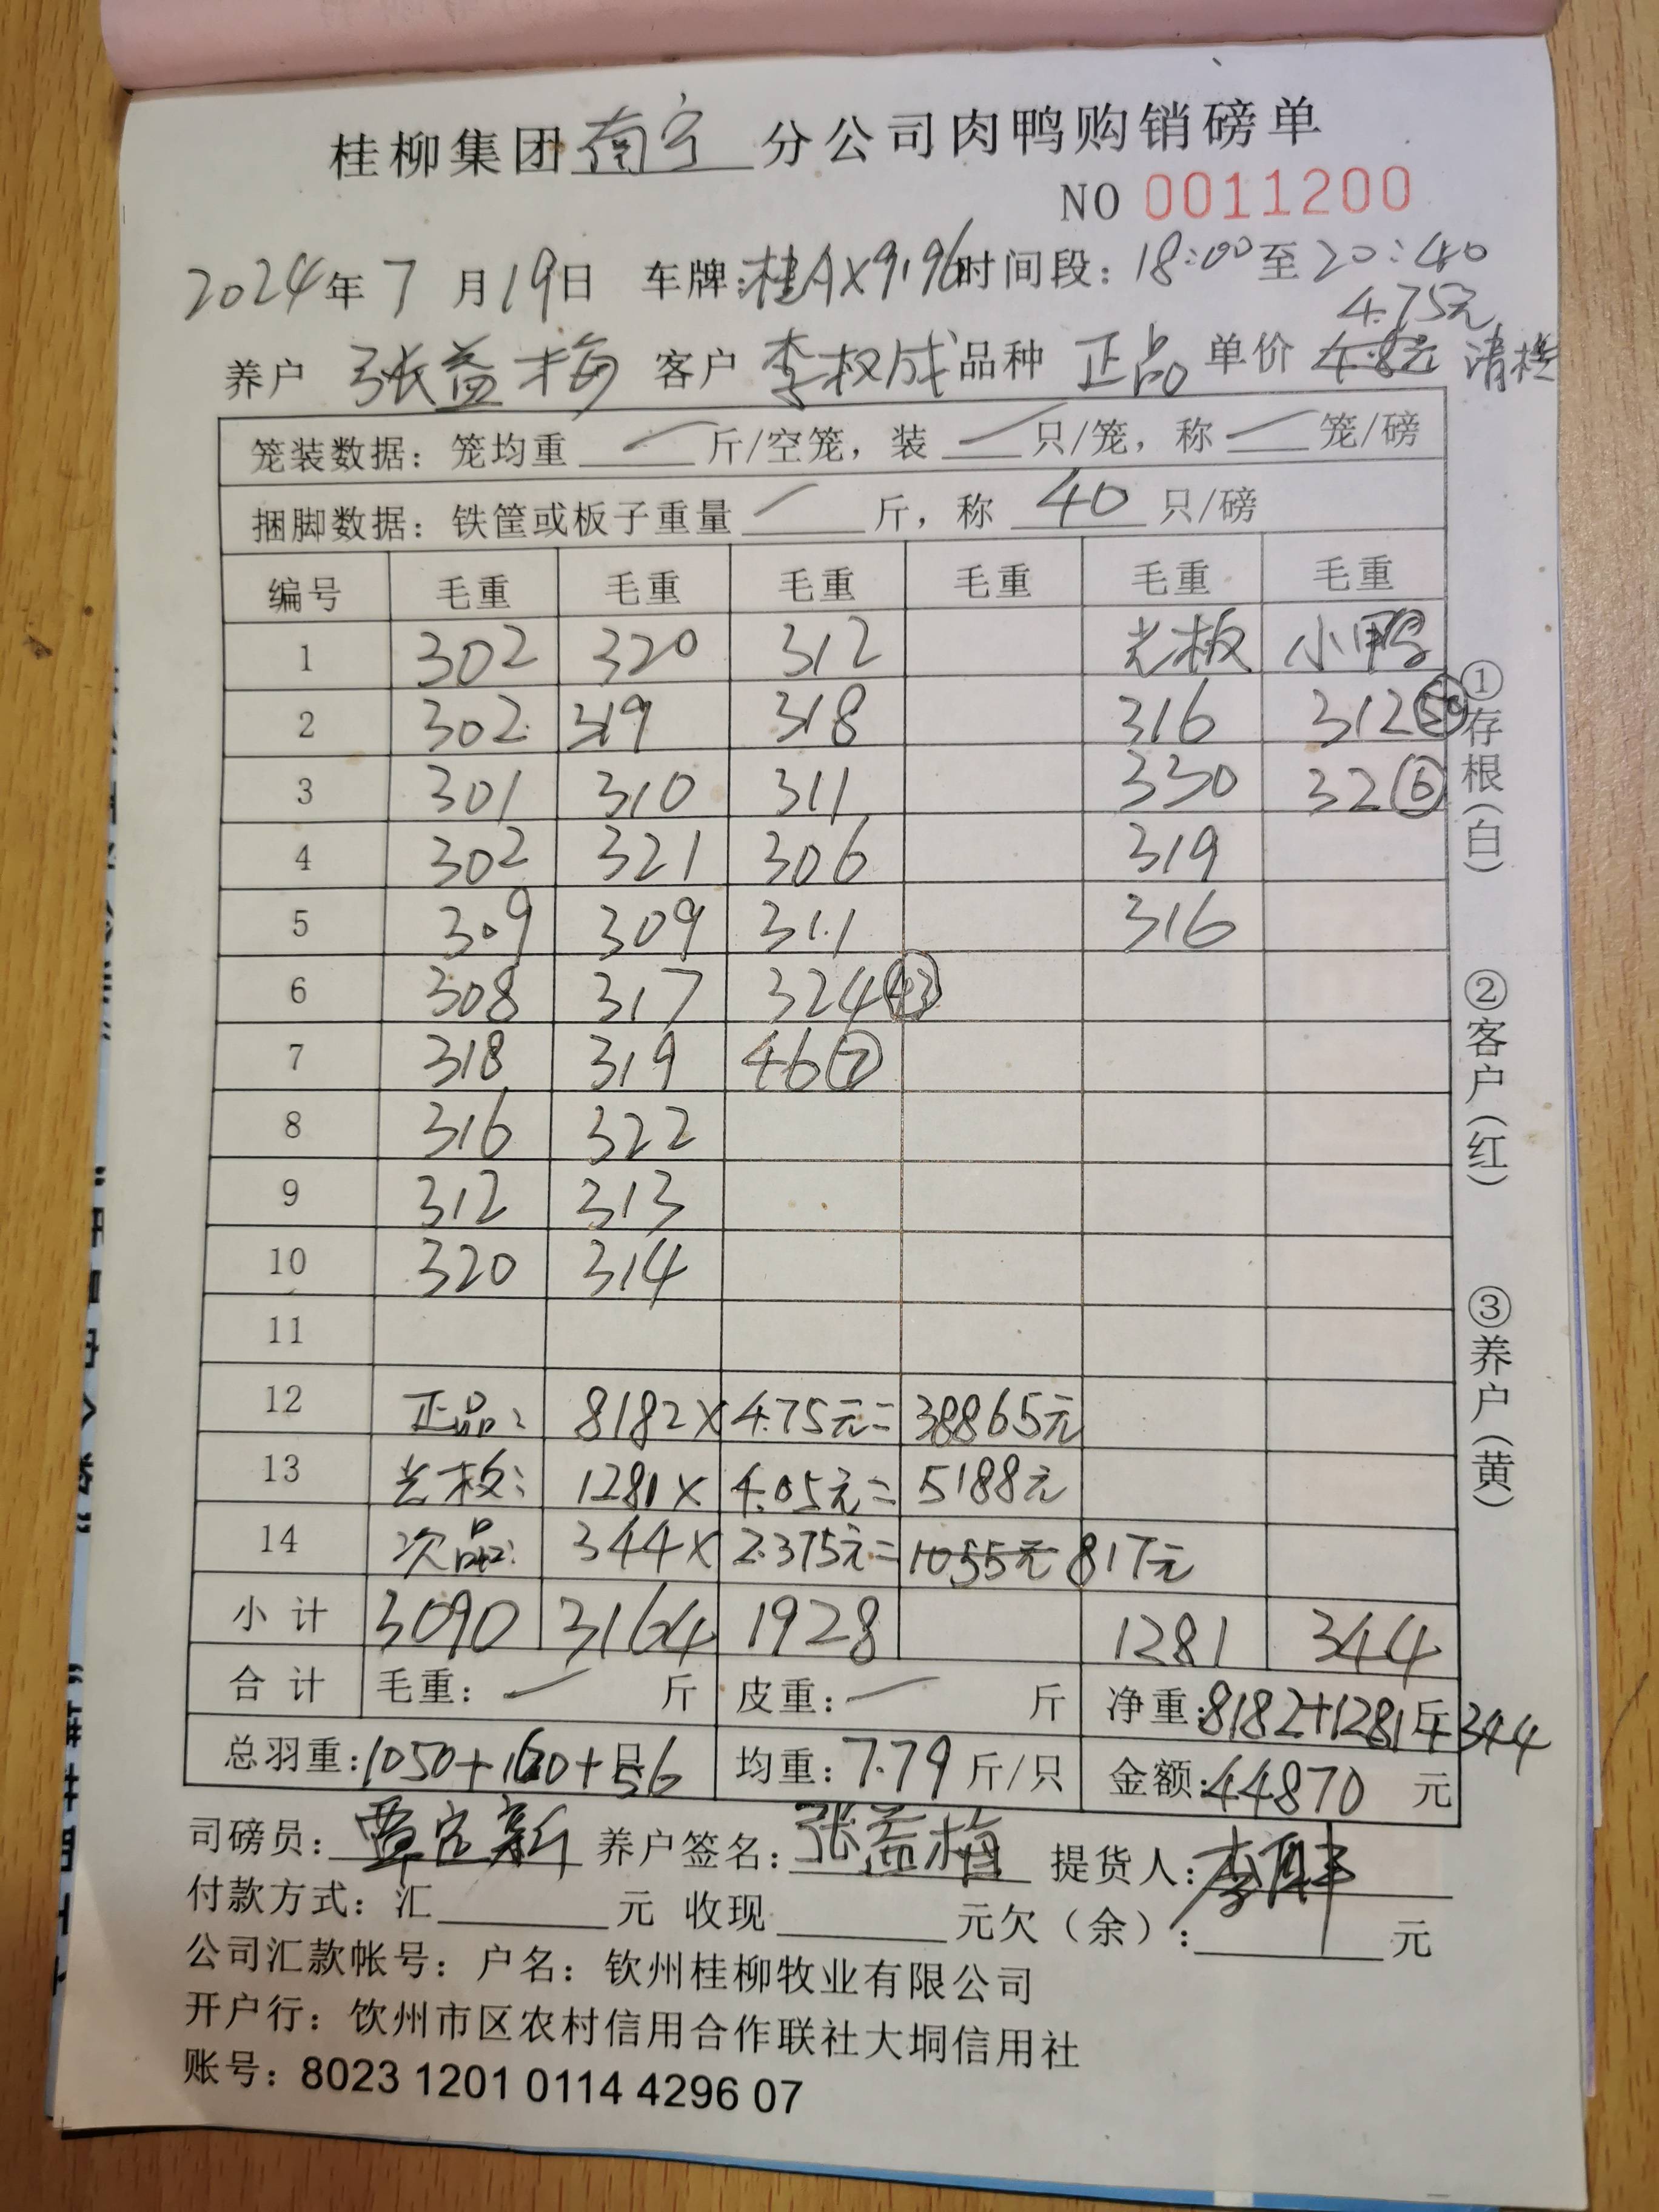 桂柳集团南宁分公司肉鸭购销磅单
NO 0011200
2024年7月19日 车牌:桂AX9196 时间段：18:00至20:40
4.75元
养户 张益梅 客户 李权成 品种 正品 单价 4.8元 清栏
笼装数据：笼均重 — 斤/空笼，装 — 只/笼，称 — 笼/磅
捆脚数据：铁筐或板子重量 — 斤，称 40 只/磅
编号 毛重 毛重 毛重 毛重 毛重 毛重
1 302 320 312 光板 小鸭
2 302 319 318 316 312 50
3 301 310 311 330 32 ⑥
4 302 321 306 319
5 309 309 311 316
6 308 317 324 ㊸
7 318 319 46 ⑦
8 316 322
9 312 313
10 320 314
11
12 正品: 8182× 4.75元= 38865元
13 光板: 1281× 4.05元= 5188元
14 次品: 344× 2.375元= 1055元 817元
小计 3090 3164 1928 1281 344
合计 毛重：— 斤 皮重：— 斤 净重:8182+1281斤+344
总羽重:1050+160+56只 均重:7.79斤/只 金额:44870元
司磅员: 覃定新 养户签名: 张益梅 提货人:
付款方式：汇 元 收现 元欠（余）: 元
公司汇款帐号：户名：钦州桂柳牧业有限公司
开户行：饮州市区农村信用合作联社大垌信用社
账号：8023 1201 0114 4296 07
①存根(白)
②客户(红)
③养户(黄)